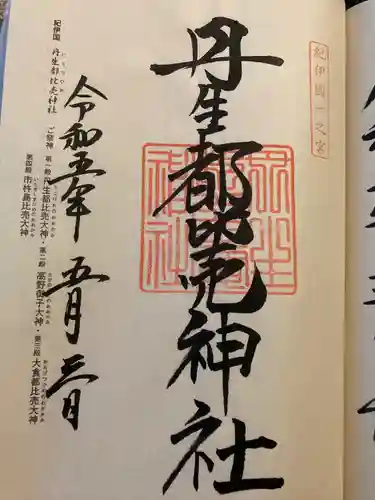 紀伊國一之宮
丹生都比売神社
令和五年 五月 三日
紀伊国 丹生都比売神社
ご祭神 第一殿 丹生都比売大神・第二殿 高野御子大神・第三殿 大食都比売大神
第四殿 市杵島比売大神